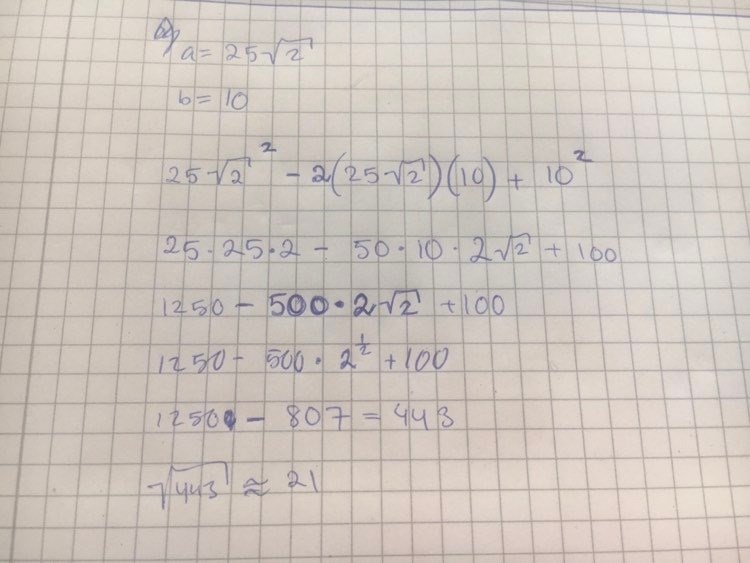 a)
a = 25√2
b = 10
25√2² - 2(25√2)(10) + 10²
25·25·2 - 50·10·2√2 + 100
1250 - 500·2√2 + 100
1250 - 500·2^½ + 100
1250 - 807 = 443
√443 ≈ 21